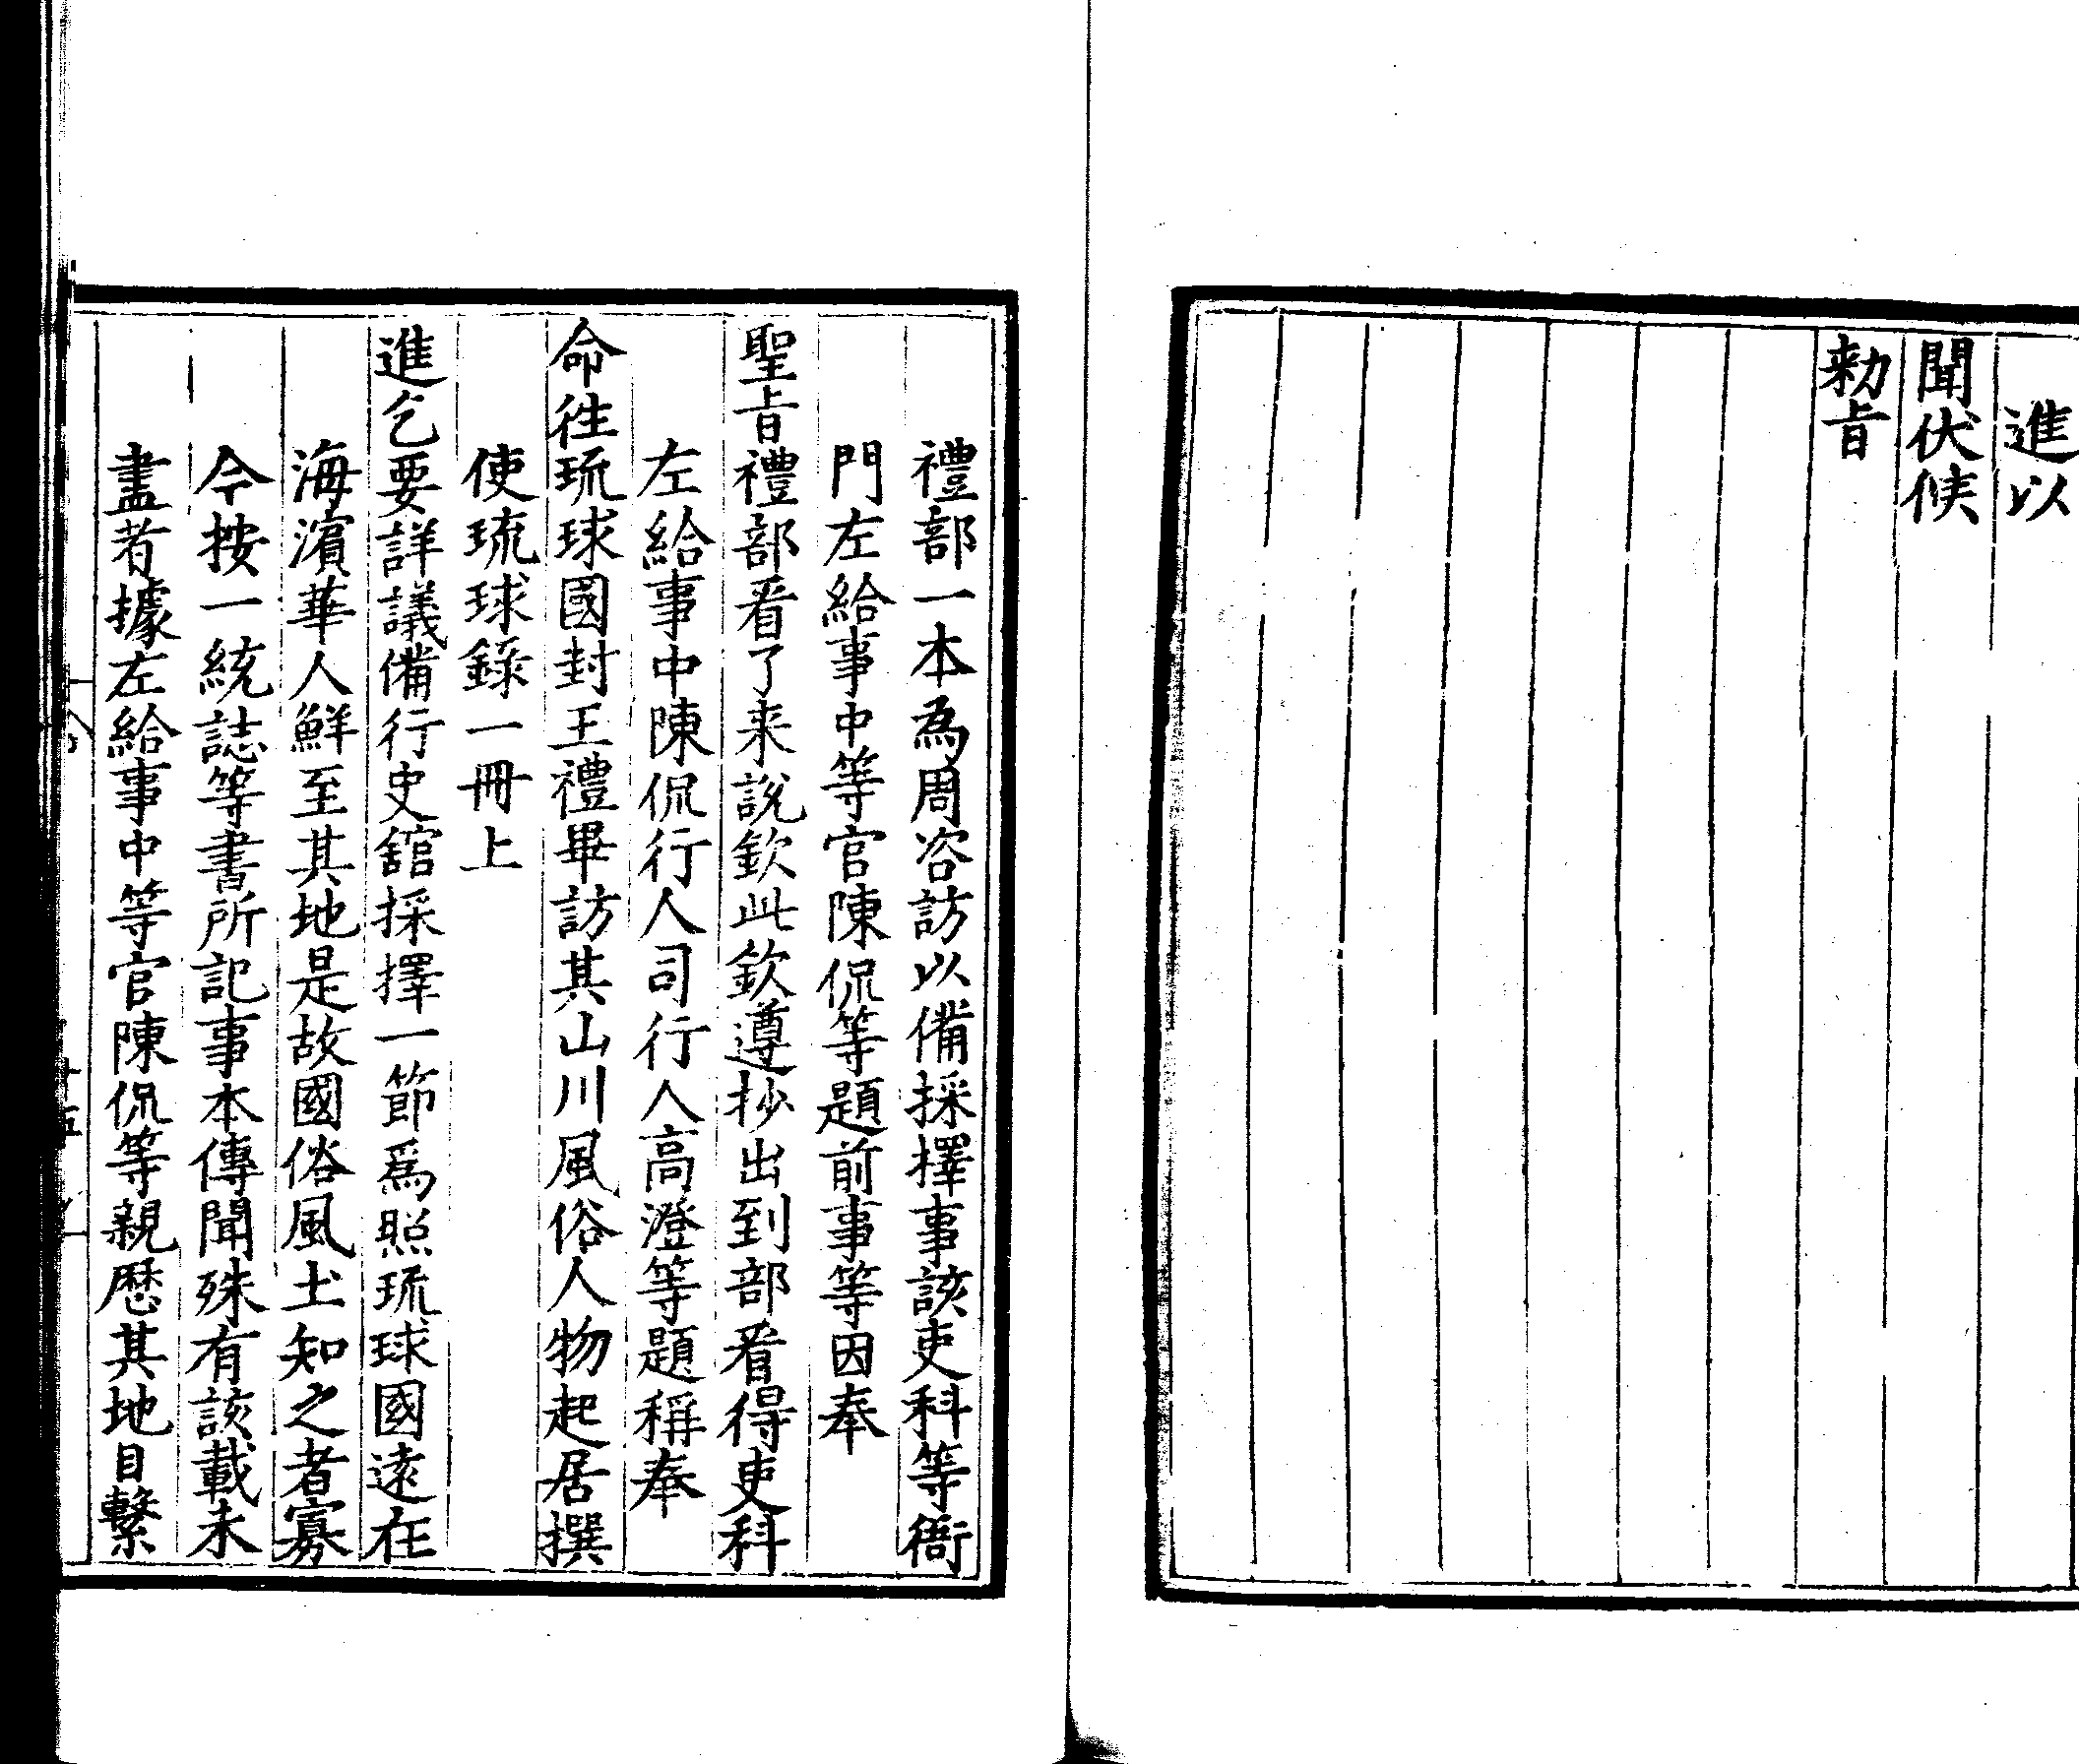 進以
聞伏候
勑旨
禮部一本為周咨訪以備採擇事該吏科等衙
門左給事中等官陳侃等題前事等因奉
聖旨禮部看了来說欽此欽遵抄出到部看得吏科
左給事中陳侃行人司行人高澄等題稱奉
命徃琉球國封王禮畢訪其山川風俗人物起居撰
使琉球錄一冊上
進乞要詳議備行史舘採擇一節爲照琉球國逺在
海濵華人鮮至其地是故國俗風土知之者寡
今按一統誌等書所記事本傳聞殊有該載未
盡者據左給事中等官陳侃等親歴其地目繫